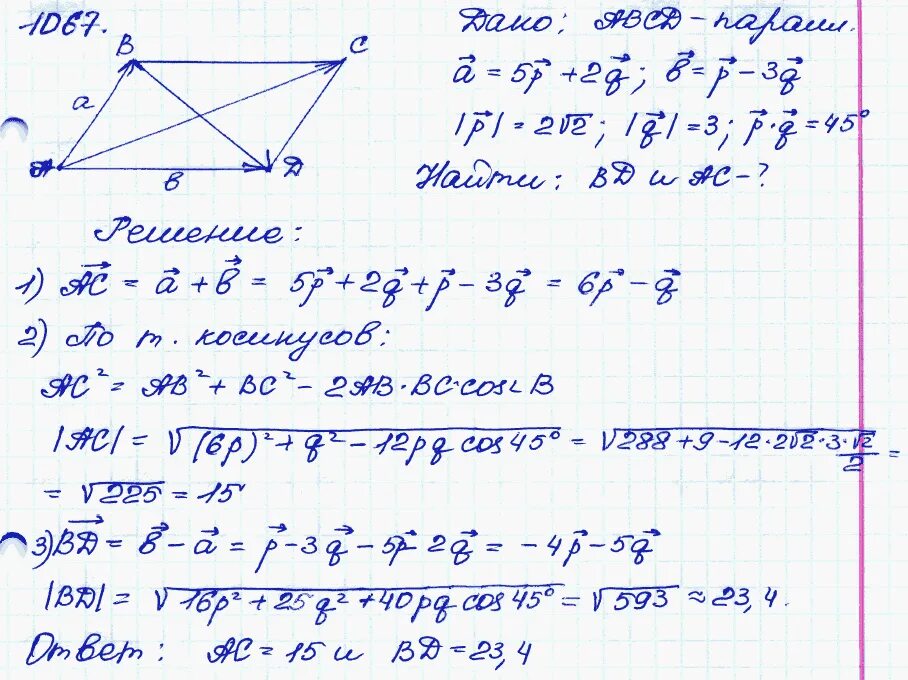 1067.
B C
a
A в D
Дано: ABCD - парал.
a⃗ = 5p⃗ + 2q⃗; в⃗ = p⃗ - 3q⃗
|p⃗| = 2√2; |q⃗| = 3; p⃗·q⃗ = 45°
Найти: BD и AC - ?
Решение:
1) AC⃗ = a⃗ + в⃗ = 5p⃗ + 2q⃗ + p⃗ - 3q⃗ = 6p⃗ - q⃗
2) По т. косинусов:
AC² = AB² + BC² - 2AB·BC·cos∠B
|AC| = √(6p)² + q² - 12pq cos45° = √288 + 9 - 12·2√2·3·√2/2 =
= √225 = 15
3) BD⃗ = в⃗ - a⃗ = p⃗ - 3q⃗ - 5p⃗ 2q⃗ = -4p⃗ - 5q⃗
|BD| = √16p² + 25q² + 40pq cos45° = √593 ≈ 23,4.
Ответ: AC = 15 и BD = 23,4